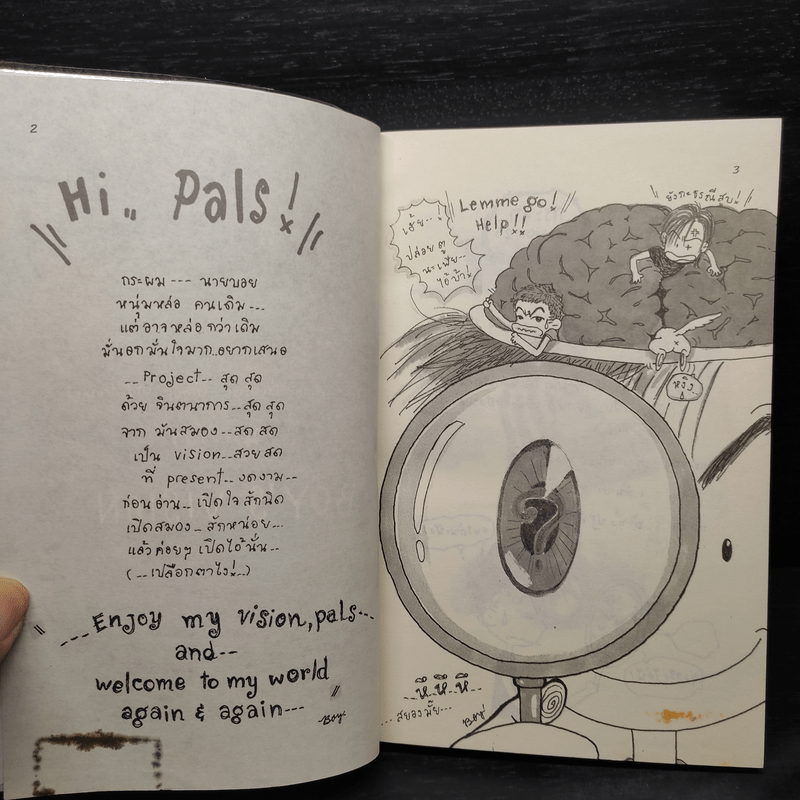 2
Hi.. Pals!
กระผม --- นายบอย
หนุ่มหล่อ คนเดิม---
แต่อาจหล่อกว่าเดิม
มั่นอกมั่นใจมาก..อยากเสนอ
-- Project-- สุด สุด
ด้วย จินตนาการ--สุด สุด
จาก มันสมอง--สด สด
เป็น vision--สวยสด
ที่ present--งดงาม--
ก่อนอ่าน--เปิดใจสักนิด
เปิดสมอง--สักหน่อย---
แล้วค่อยๆ เปิดไอ้นั่น--
(--เปลือกตาไง!--)
---Enjoy my vision,pals---
and--
welcome to my world
again & again---
Boy'
3
เฮ้ย--!
ปล่อยตู
นะเฟ้ย--
ไอ้บ้า!
Lemme go!
Help!!
ยังกะธรณีสูบ!
หงิง
--หึ..หึ..หึ--
---สยองมั้ย---
Boy'